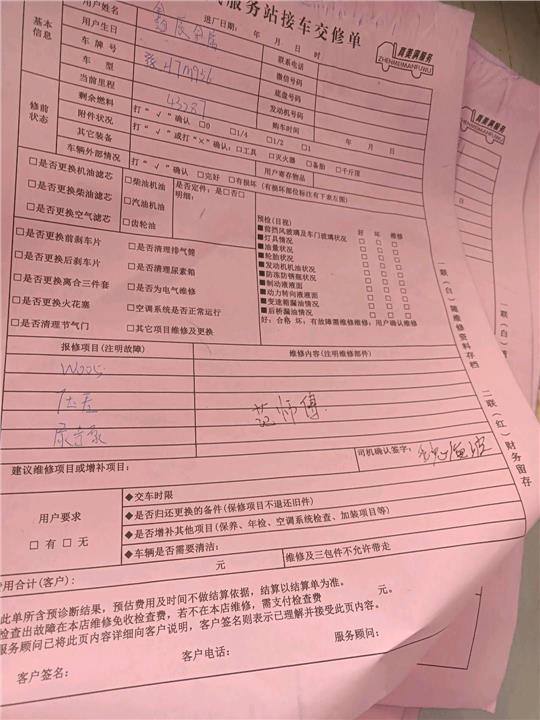 服务站接车交修单
真美满服务
ZHENMEIMANFUWU
基本信息
用户姓名
送厂日期： 年 月 日 时
用户生日
联系电话
车牌号
微信号码
车型
底盘号码
当前里程
43287
发动机号码
剩余燃料
打“√”确认 □0 □1/4 □1/2 □1
购车时间 年 月 日
修前状态
附件状况
打“√”或打“×”确认：□工具 □灭火器 □备胎 □千斤顶
其它装备
用户寄存物品
车辆外部情况
打“√”确认 □完好 □有损坏（有损坏部位标注有下表左图）
□是否更换机油滤芯
□是否更换柴油滤芯
□是否更换空气滤芯
□柴油机油
□汽油机油
□齿轮油
是否定件：是□否□
明细：
□是否更换前刹车片
□是否更换后刹车片
□是否更换离合三件套
□是否更换火花塞
□是否清理节气门
□是否清理排气筒
□是否清理尿素箱
□是否为电气维修
□空调系统是否正常运行
□其它项目维修及更换
预检（目视） 好 坏 维修
■前挡风玻璃及车门玻璃状况 □ □ □
■灯具情况 □ □ □
■油量状况 □ □ □
■轮胎状况 □ □ □
■发动机机油状况 □ □ □
■防冻防锈瓶状况 □ □ □
■制动液液面 □ □ □
■动力转向液液面 □ □ □
■变速箱漏油情况 □ □ □
■后桥漏油情况 □ □ □
好：合格 坏：有故障需维修维修：用户确认维修
报修项目（注明故障）
维修内容（注明维修部件）
压差
尿素泵
范师傅
建议维修项目或增补项目：
司机确认签字：
用户要求
□有 □无
◆交车时限
◆是否归还更换的备件（保修项目不退还旧件）
◆是否增补其他项目（保养、年检、空调系统检查、加装项目等）
◆车辆是否需要清洁：
元
维修及三包件不允许带走
费用合计（客户）：
此单所含预诊断结果，预估费用及时间不做结算依据，结算以结算单为准。
检查出故障在本店维修免收检查费，若不在本店维修，需支付检查费 元。
服务顾问已将此页内容详细向客户说明，客户签名则表示已理解并接受此页内容。
客户签名：
客户电话：
服务顾问：
一联（白）随维修资料存档
二联（红）财务留存